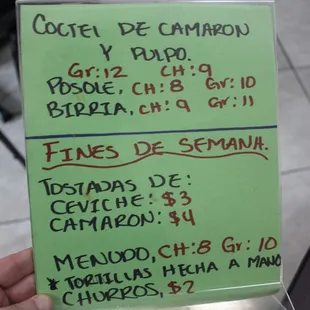 COCTEL DE CAMARON
Y PULPO.
Gr:12 CH:9
POSOLE, CH:8 Gr:10
BIRRIA, CH:9 Gr:11
FINES DE SEMANA.
TOSTADAS DE:
CEVICHE: $3
CAMARON: $4
MENUDO, CH:8 Gr:10
* TORTILLAS HECHA A MANO
CHURROS, $2